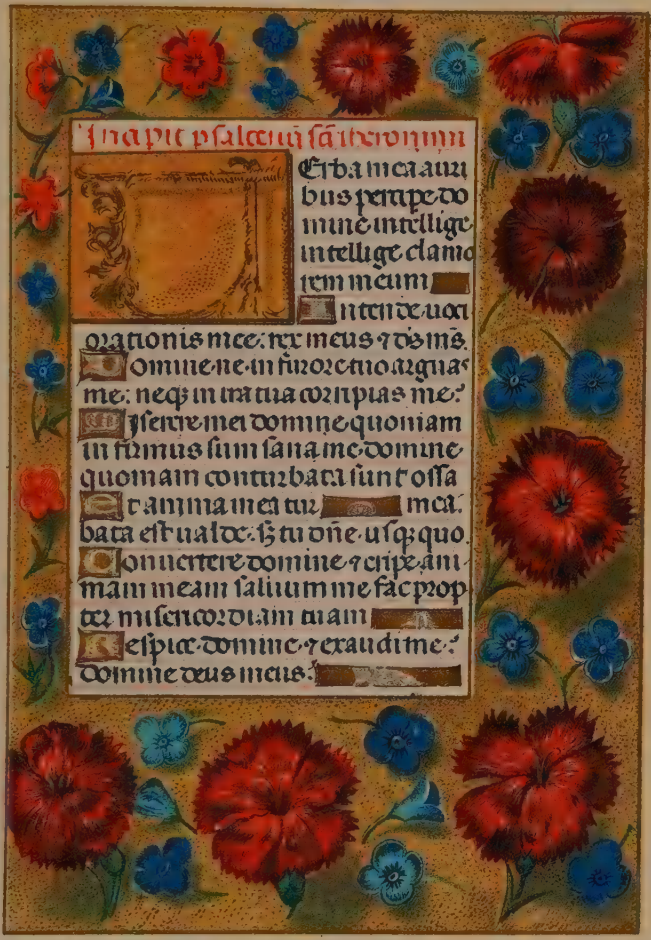 Incipit psalteriū scī iheronimi
Erba mea auri
bus percipe do
mine intellige
intellige clamo
rem meum
Intende uoci
orationis mee: rex meus ⁊ ds ms.
Domine ne in furore tuo arguas
me: neq̄ in ira tua corripias me:
Miserere mei domine quoniam
infirmus sum sana me domine
quoniam conturbata sunt ossa
Et anima mea tur mea:
bata est ualde: sꝫ tu dñe usq̄ quo.
Conuertere domine ⁊ eripe ani
mam meam saluum me fac prop
ter misericordiam tuam
Respice domine ⁊ exaudi me:
domine deus meus: